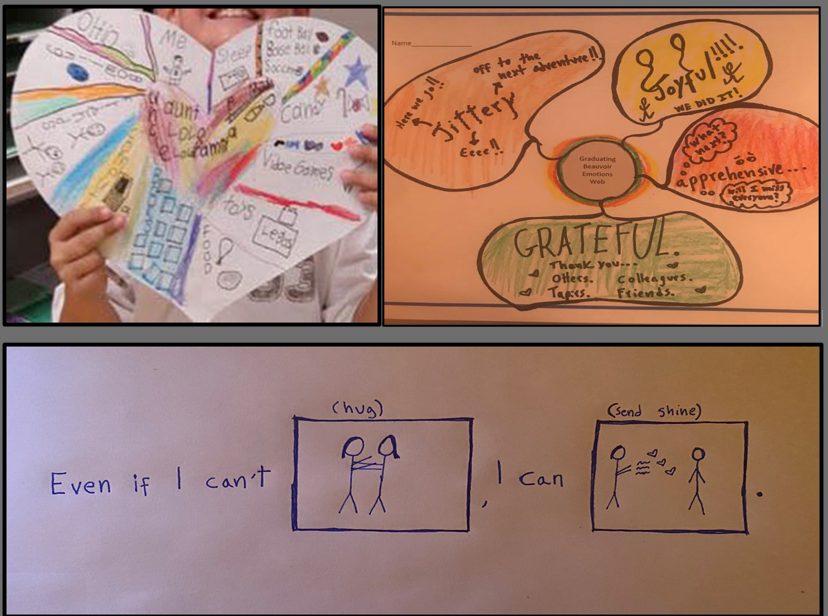 Ohio
Me
Sleep
Foot Ball
Base Ball
Soccer
Candy
aunt
Lolo
Video Games
toys
Legos
FOOD
Name
Here we go!!
off to the
next adventure!!
Jittery
Eeee!!
Joyful!!!!
WE DID IT!
Graduating
Beauvoir
Emotions
Web
What
next?
apprehensive...
Will I miss
everyone?
GRATEFUL.
Thank you...
Otters. Colleagues.
Tapirs. Friends.
(hug)
(send shine)
Even if I can't , I can .